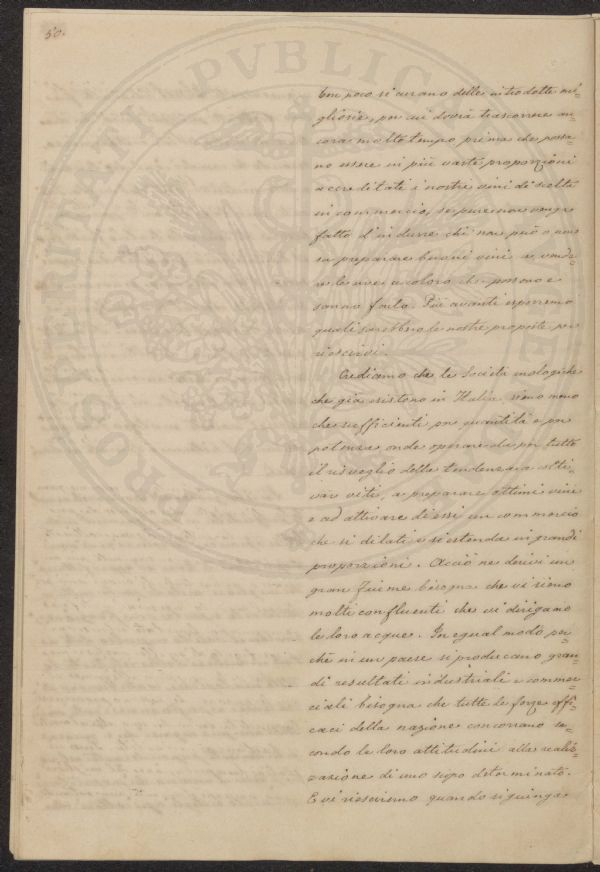 50.
ben poco si curano delle introdotte mi=
gliorie, per cui dovrà trascorrere an=
cora molto tempo prima che possa=
no essere in più vaste proporzioni
accreditati i nostri vini di scelta
in commercio, se pure non venga
fatto d'indurre chi non può o non
sa preparare buoni vini a vende=
re le uve a coloro che possono e
sanno farlo. Più avanti esporremo
quali sarebbero le nostre proposte per
riescirvi.
Crediamo che le Società enologiche
che già esistono in Italia sieno meno
che sufficienti per quantità e per
potenza onde operare da per tutto
il risveglio della tendenza a colti=
var viti, a preparare ottimi vini
e ad attivare di essi un commercio
che si dilati e si estenda in grandi
proporzioni. Acciò ne derivi un
gran fiume bisogna che vi sieno
molti confluenti che vi dirigano
le loro acque. In egual modo per=
chè in un paese si producano gran=
di resultati industriali e commer=
ciali bisogna che tutte le forze effi=
caci della nazione concorrano se=
condo le loro attitudini alla realiz=
zazione di uno scopo determinato.
E vi riesciremo quando si giunga
PROSPERITATI PVBLICAE